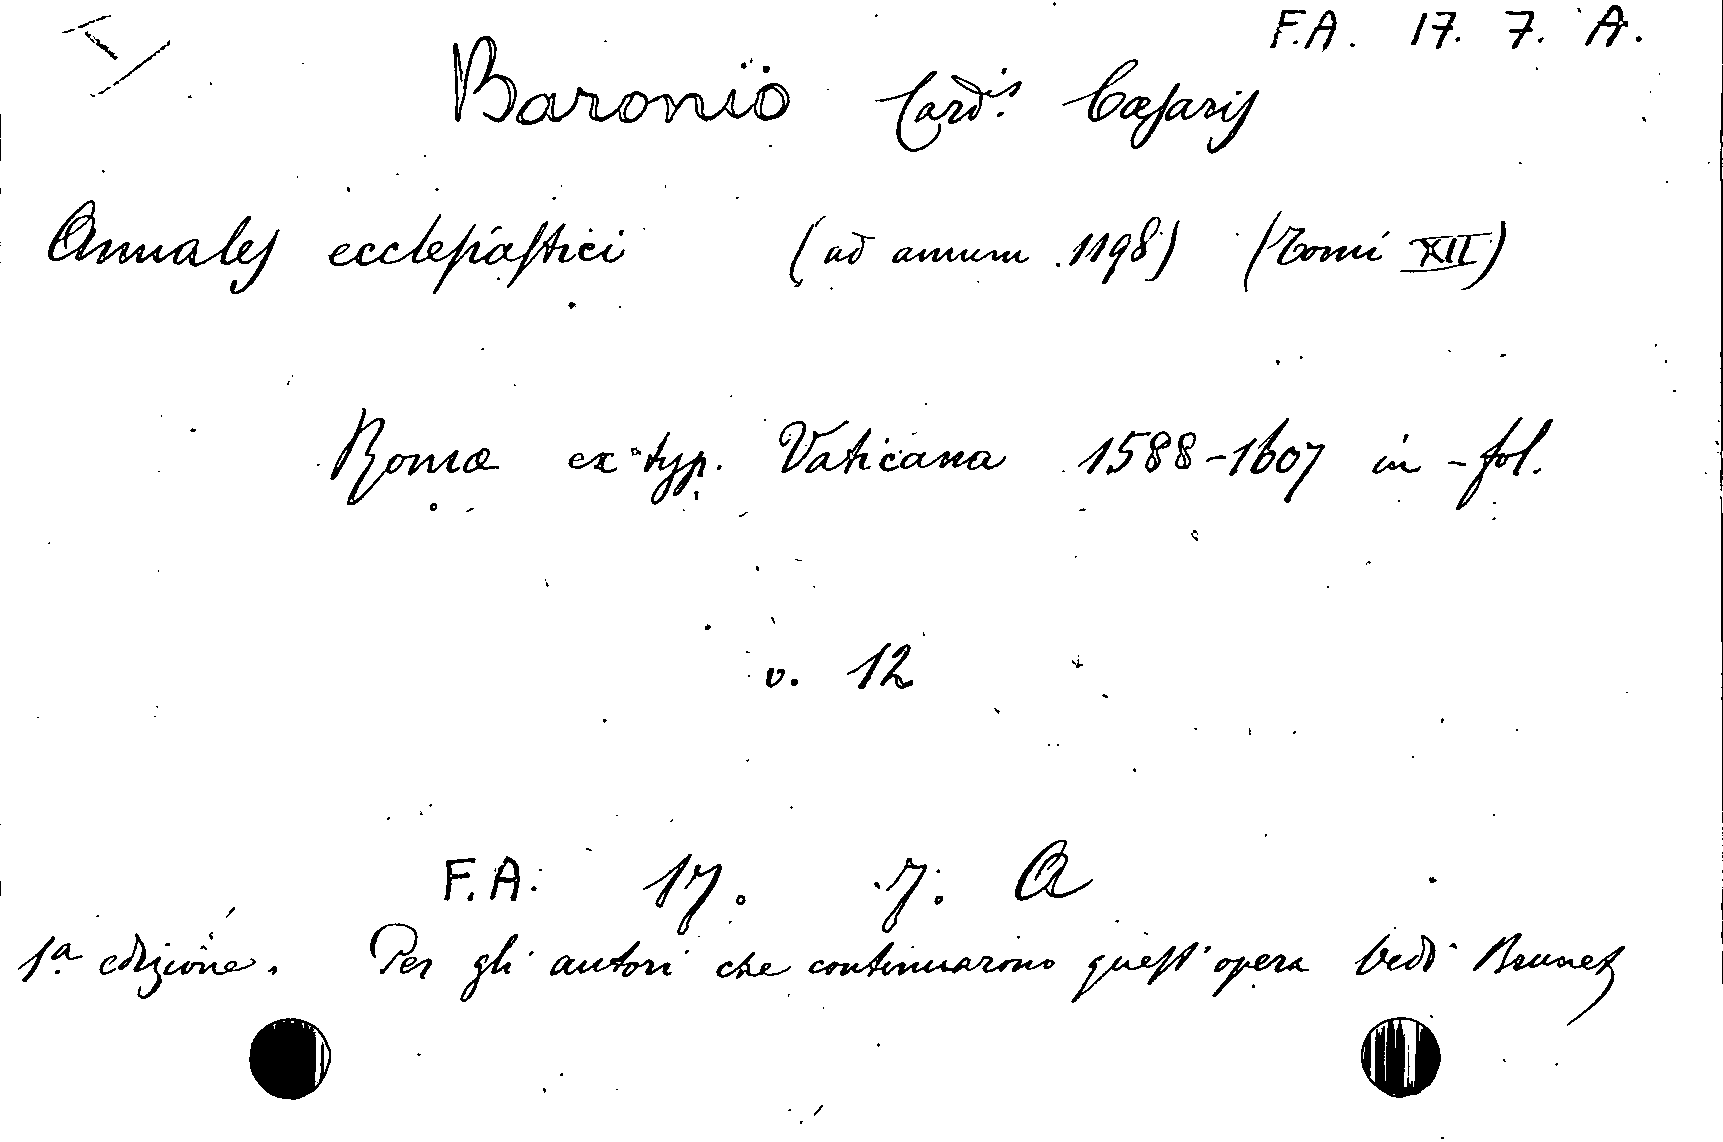 F.A. 17. 7. A.
Baronio Card.is Cæsaris
Annales ecclesiastici (ad annum 1198) (Tomi XII)
Romæ ex typ. Vaticana 1588-1607 in-fol.
v. 12
F.A. 17. 7. A
1.a edizione. Per gli autori che continuarono quest'opera vedi Brunet